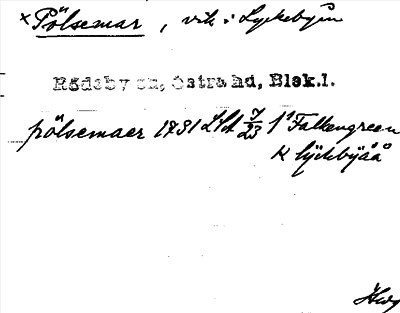 ×Pölsemar, vik i Lyckebyån
Rödeby sn, Östra hd, Blek.l.
pölsemaer 1731 LSA 7/23 1¹ Falkengreen
K lÿckbÿåå